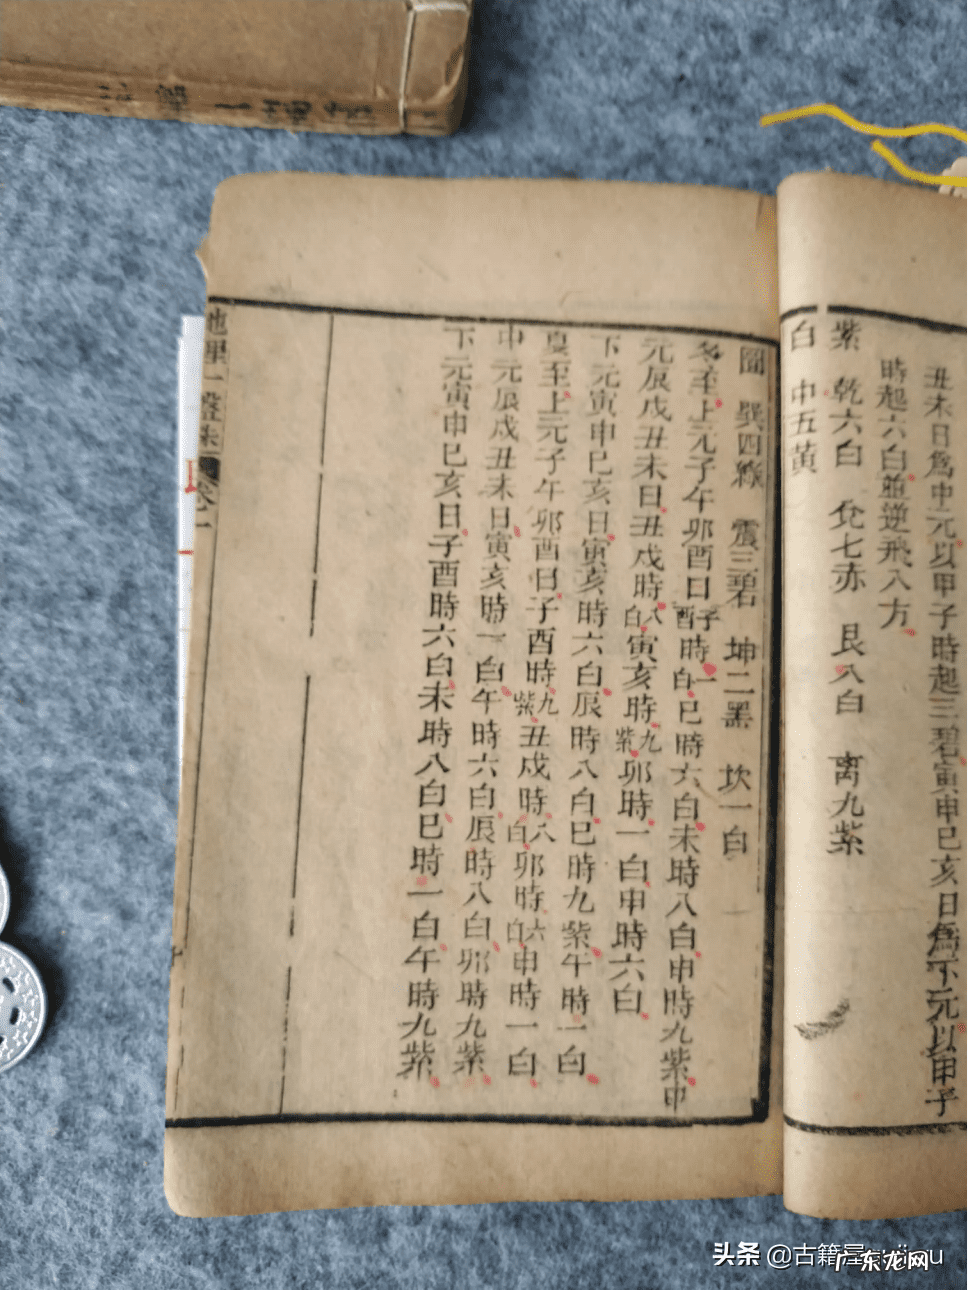 丑未日為中元以甲子時起三碧寅申巳亥日為下元以甲子
時起六白並逆飛八方
紫 乾六白 兌七赤 艮八白 离九紫
白 中五黃
圖 巽四綠 震三碧 坤二黑 坎一白
冬至上元子午卯酉日子酉時一白巳時六白未時八白申時九紫中
元辰戌丑未日丑戌時八白寅亥時九紫卯時一白申時六白
下元寅申巳亥日寅亥時六白辰時八白巳時九紫午時一白
夏至上元子午卯酉日子酉時九紫丑戌時八白卯時六白申時一白
中元辰戌丑未日寅亥時一白午時六白辰時八白卯時九紫
下元寅申巳亥日子酉時六白未時八白巳時一白午時九紫
地理一盤珠
卷一
头条 @古籍屋
广东龙网